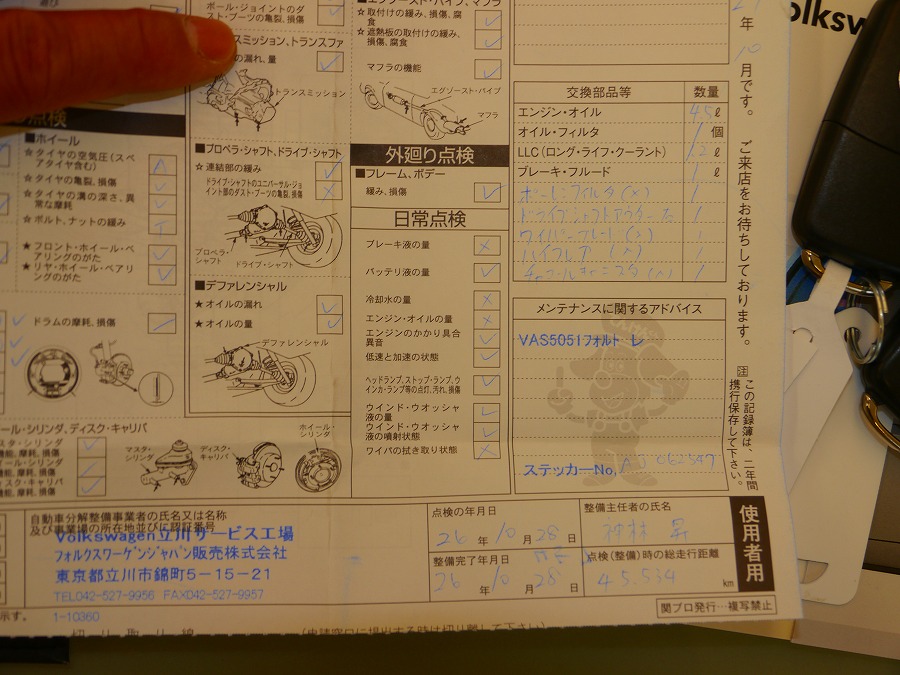 ボール・ジョイントのダ
スト・ブーツの亀裂, 損傷
の漏れ、量
トランスミッション
点検
■ホイール
☆タイヤの空気圧(スペ
アタイヤ含む)
A
☆タイヤの亀裂, 損傷
☆タイヤの溝の深さ、異
常な摩耗
☆ボルト、ナットの緩み
T
★フロント・ホイール・ベ
アリングのがた
★リヤ・ホイール・ベアリ
ングのがた
ドラムの摩耗、損傷
■プロペラ・シャフト、ドライブ・シャフト
☆連結部の緩み
ドライブ・シャフトのユニバーサル・ジョ
イント部のダスト・ブーツの亀裂、損傷
×
プロペラ・
シャフト
ドライブ・シャフト
■デファレンシャル
★オイルの漏れ
★オイルの量
デファレンシャル
☆取付けの緩み、損傷、腐
食
☆遮熱板の取付けの緩み、
損傷、腐食
マフラの機能
エグゾースト・パイプ
マフラ
外廻り点検
■フレーム、ボデー
緩み、損傷
日常点検
ブレーキ液の量
×
バッテリ液の量
冷却水の量
×
エンジン・オイルの量
×
エンジンのかかり具合
異音
低速と加速の状態
ヘッドランプ、ストップ・ランプ、ウ
インカ・ランプ等の点灯、汚れ、損傷
ウインド・ウオッシャ
液の量
ウインド・ウオッシャ
液の噴射状態
ワイパの拭き取り状態
×
交換部品等 数量
エンジン・オイル 4.5 ℓ
オイル・フィルタ 1 個
LLC(ロング・ライフ・クーラント) 1.2 ℓ
ブレーキ・フルード 1 ℓ
1
1
1
1
メンテナンスに関するアドバイス
VAS5051フォルト レ
ステッカーNo. AJ062547
年 10 月です。 ご来店をお待ちしております。
注 この記録簿は、二年間
携行保存して下さい。
マスタ・
シリンダ
ディスク・
キャリパ
ホイール・
シリンダ
自動車分解整備事業者の氏名又は名称
及び事業場の所在地並びに認証番号
Volkswagen立川サービス工場
フォルクスワーゲンジャパン販売株式会社
東京都立川市錦町5-15-21
TEL042-527-9956 FAX042-527-9957
1-10360
点検の年月日
26 年 10 月 28 日
整備完了年月日
26 年 10 月 28 日
整備主任者の氏名
点検(整備)時の総走行距離
45.534 km
使用者用
関プロ発行…複写禁止
切り取り線
(申請窓口に提出する時は切り離して下さい)
olksw